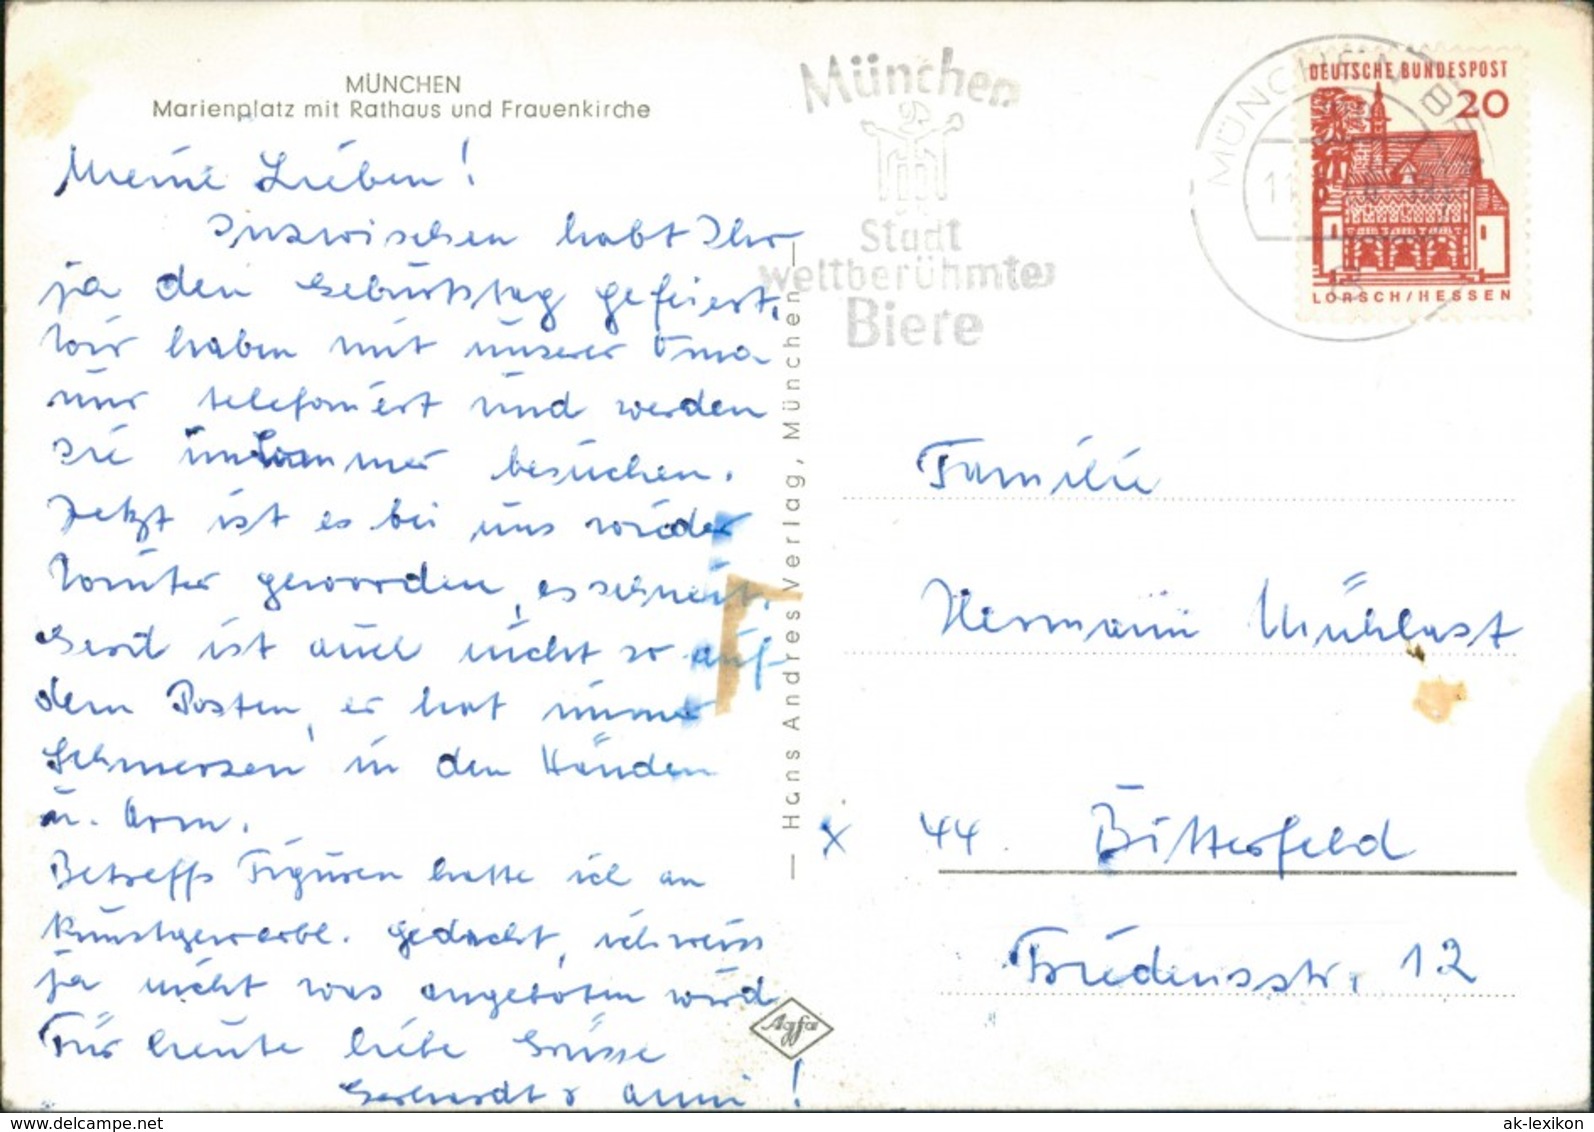 MÜNCHEN
Marienplatz mit Rathaus und Frauenkirche
Meine Lieben!
Inzwischen habt Ihr
ja den Geburtstag gefeiert,
Wir haben mit unserer Oma
nur telefoniert und werden
sie im Sommer besuchen.
Jetzt ist es bei uns wieder
Winter geworden, es schneit.
Gerd ist auch nicht so auf
dem Posten, er hat immer
Schmerzen in den Händen
u. Arm.
Betreffs Figuren hatte ich an
Kunstgewerbl. gedacht, ich weiss
ja nicht was angeboten wird
Für heute liebe Grüsse
Gerhardt & Anni!
Hans Andres Verlag, München
Agfa
München
Stadt
weltberühmter
Biere
MÜNCHEN
DEUTSCHE BUNDESPOST
20
LORSCH/HESSEN
Familie
Hermann Mühlast
x 44 Bitterfeld
Friedensstr. 12
ak-lexikon
www.delcampe.net